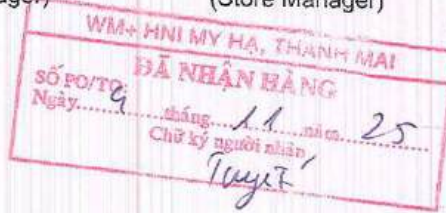 (Store Manager)
WM+ HNI MY HA, THANH MAI
ĐÃ NHẬN HÀNG
SỐ PO/TO:
Ngày 9 tháng 11 năm 25
Chữ ký người nhận
Tuyết